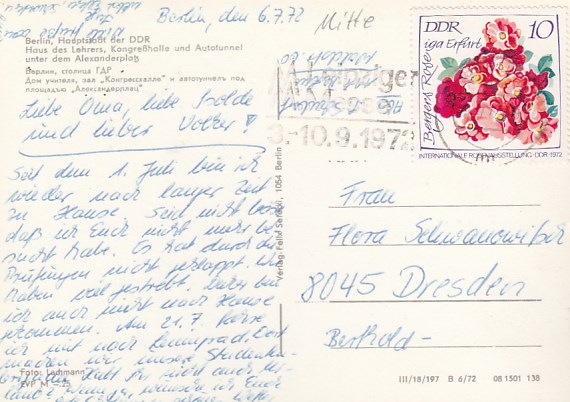 Berlin, den 6.7.72
Mitte
Berlin, Hauptstadt der DDR
Haus des Lehrers, Kongreßhalle und Autotunnel
unter dem Alexanderplatz
Берлин, столица ГДР
Дом учителя, зал „Конгрессхалле" и автотуннель под
площадью „Александерплац"
Liebe Oma, liebe Isolde
und lieber Volker!
Seit dem 1. Juli bin ich
wieder nach langer Zeit
zu Hause. Seid nicht böse
daß ich Euch nicht mehr be-
sucht habe. Es hat durch die
Prüfungen nicht geklappt. Wir
haben viel gestrebt. Daher bin
ich auch nicht nach Hause
gekommen. Am 21.7. reise
ich mit nach Leningrad. Dort
machen wir unsere Studenten-
DDR 10
iga Erfurt
Bergers Rose
INTERNATIONALE ROSENAUSSTELLUNG · DDR · 1972
3.-10.9.1972
Verlag Felix Setecki, 1054 Berlin
Frau
Flora Schwanowißer
8045 Dresden
Berthold-
Foto: Lachmann
III/18/197 B 6/72 08 1501 138